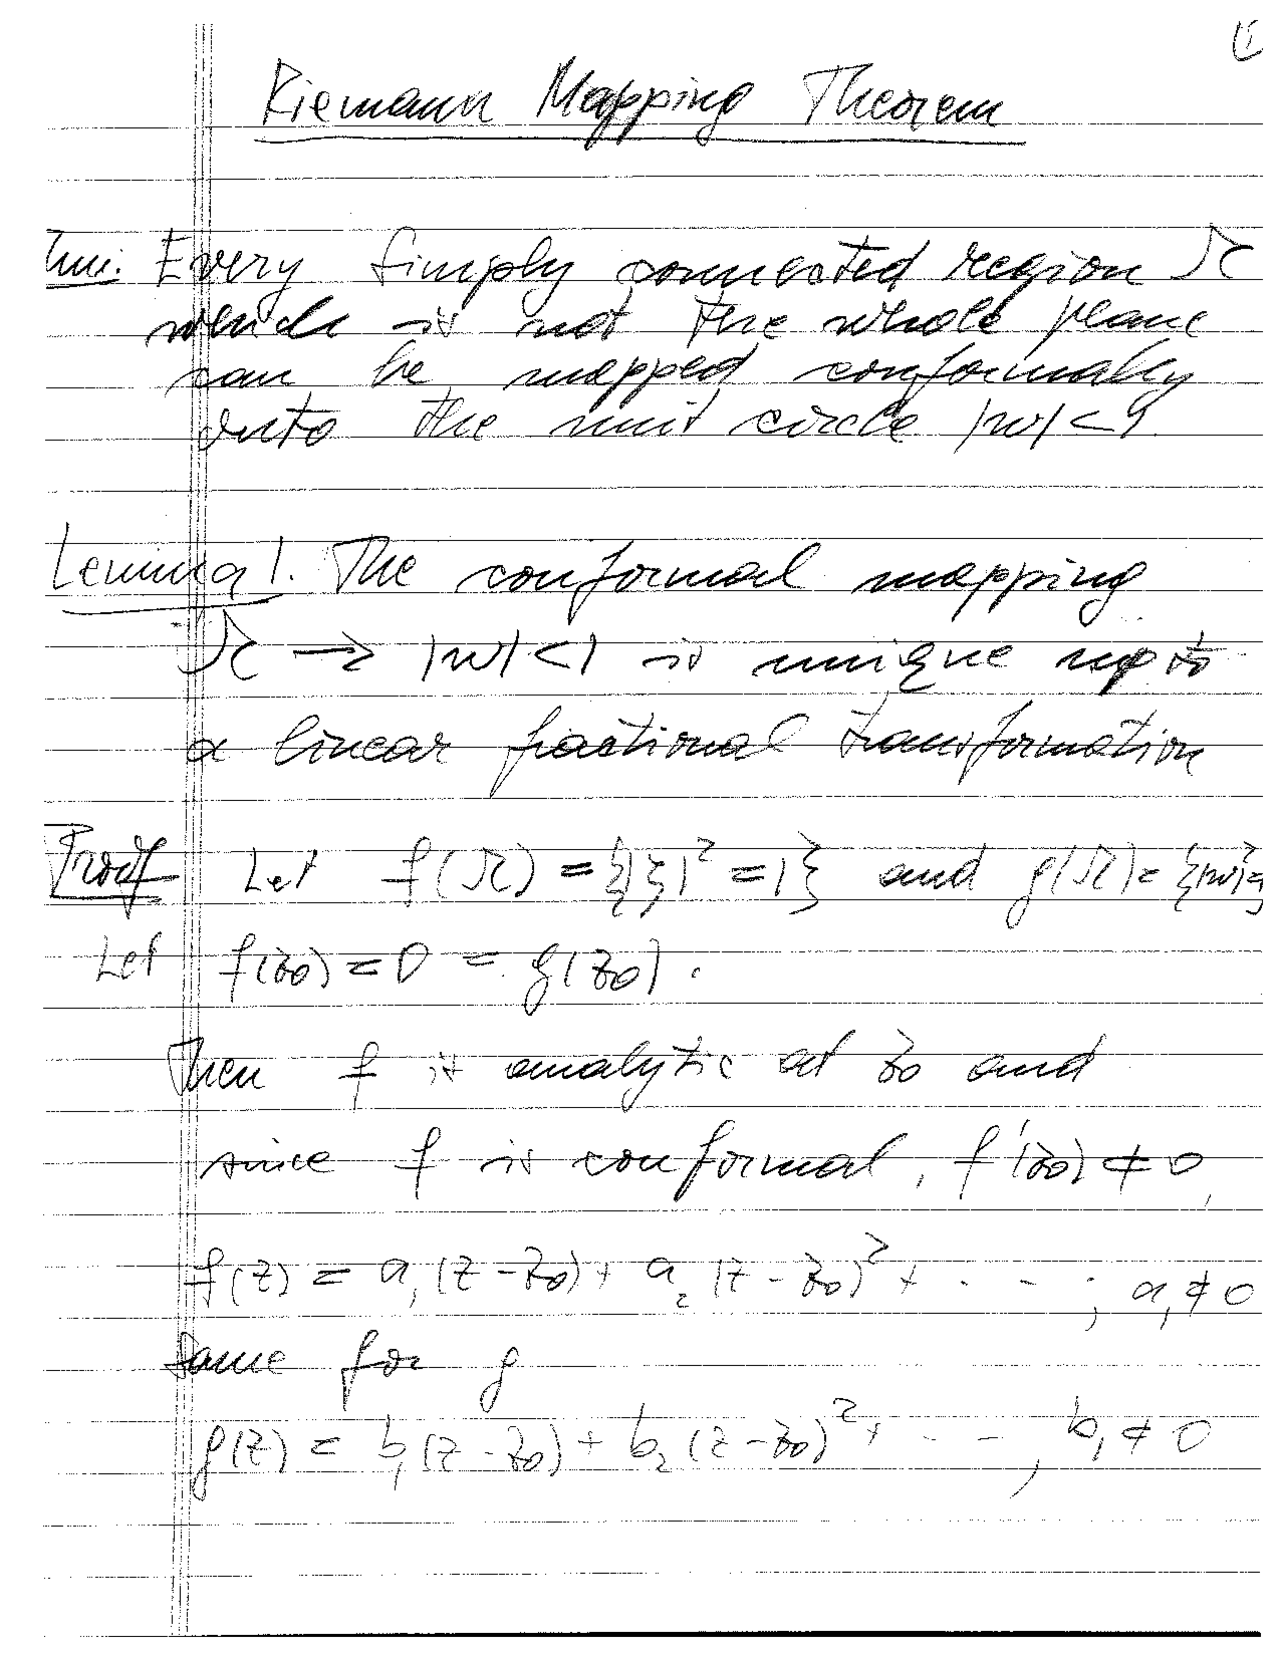 Riemann Mapping Theorem
Thm: Every simply connected region Ω
which is not the whole plane
can be mapped conformally
onto the unit circle |w|<1.
Lemma 1. The conformal mapping
Ω → |w|<1 is unique up to
a linear fractional transformation
Proof Let f(Ω) = {|ξ|² = 1} and g(Ω) = {|w|²=
Let f(z₀) = 0 = g(z₀).
Then f is analytic at z₀ and
since f is conformal, f'(z₀) ≠ 0,
f(z) = a₁(z - z₀) + a₂(z - z₀)² + · - · ; a₁ ≠ 0
Same for g
g(z) = b₁(z - z₀) + b₂(z - z₀)² + · - - , b₁ ≠ 0